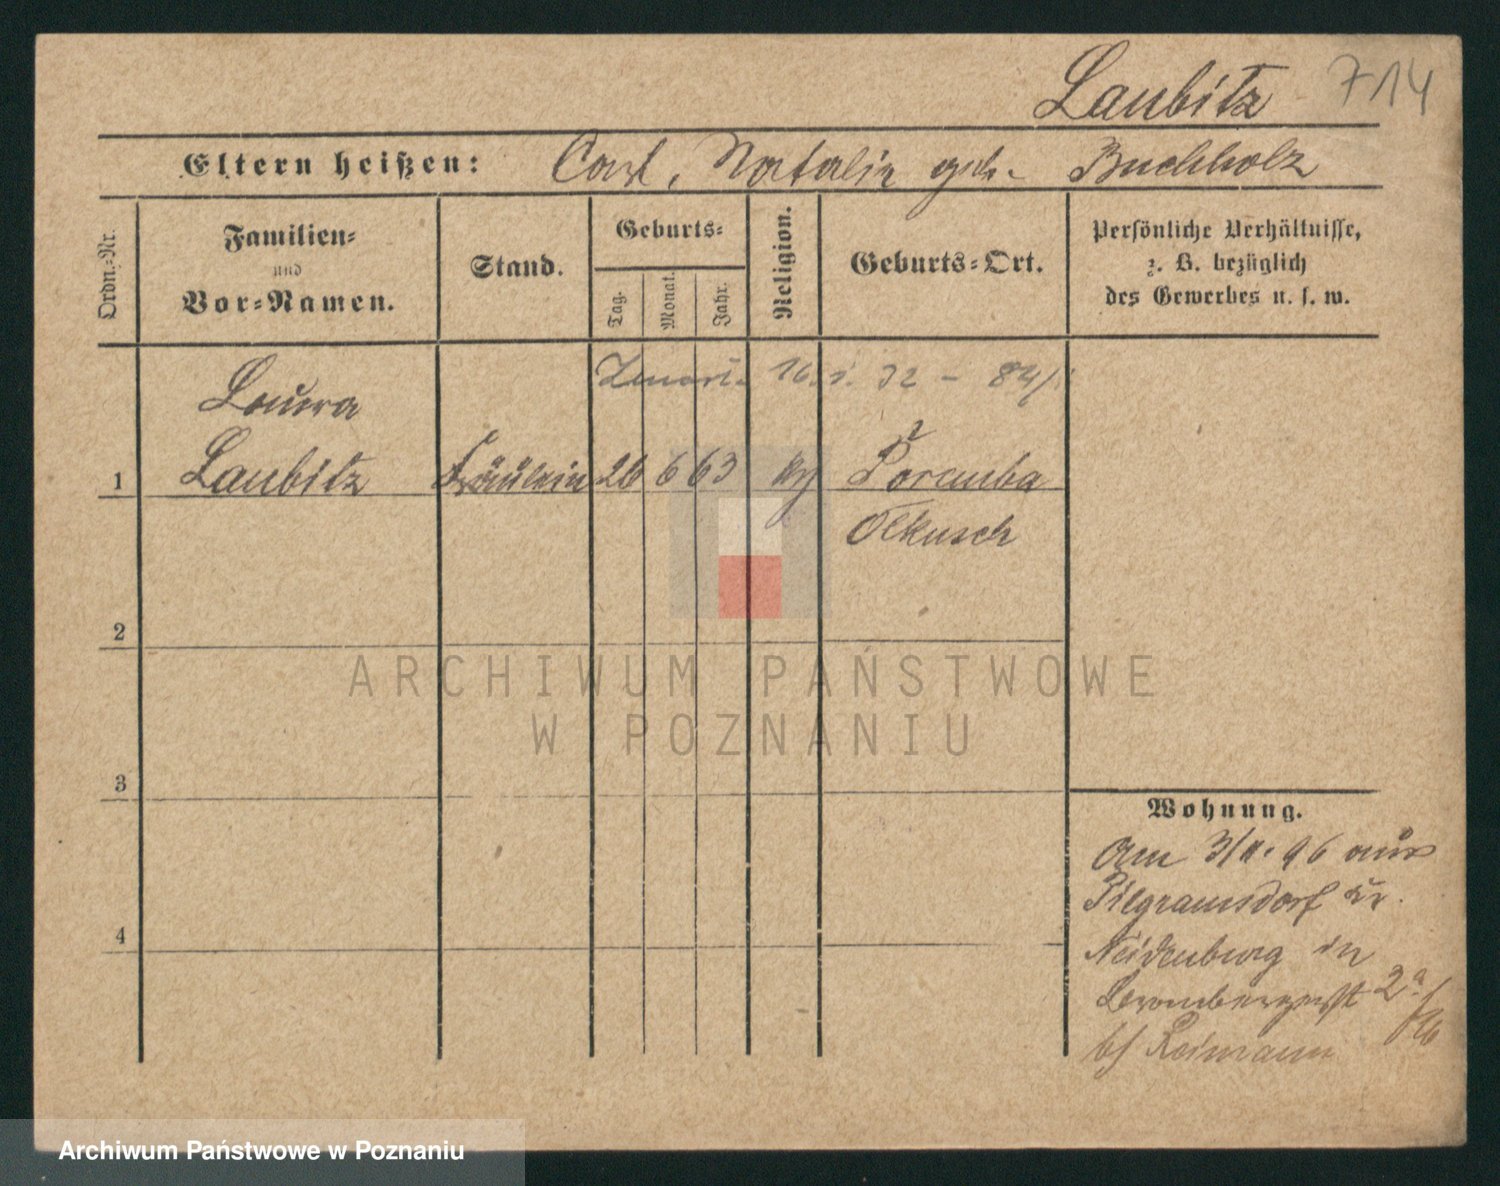 Laubitz 714
Eltern heißen: Carl, Natalie geb. Buchholz
Ordn.-Nr.
Familien-
und
Vor-Namen.
Stand.
Geburts-
Tag.
Monat.
Jahr.
Religion.
Geburts-Ort.
Persönliche Verhältnisse,
z. B. bezüglich
des Gewerbes u. s. w.
16. 32 – 84/
Laura
1 Laubitz Fräulein 26 6 63 Poremba
Olkusch
2
3
4
Wohnung.
Am 3/11. 96 aus
Pilgramsdorf Kr.
Neidenburg in
Brombergerst 2a
b/ Reimann
ARCHIWUM PAŃSTWOWE
W POZNANIU
Archiwum Państwowe w Poznaniu